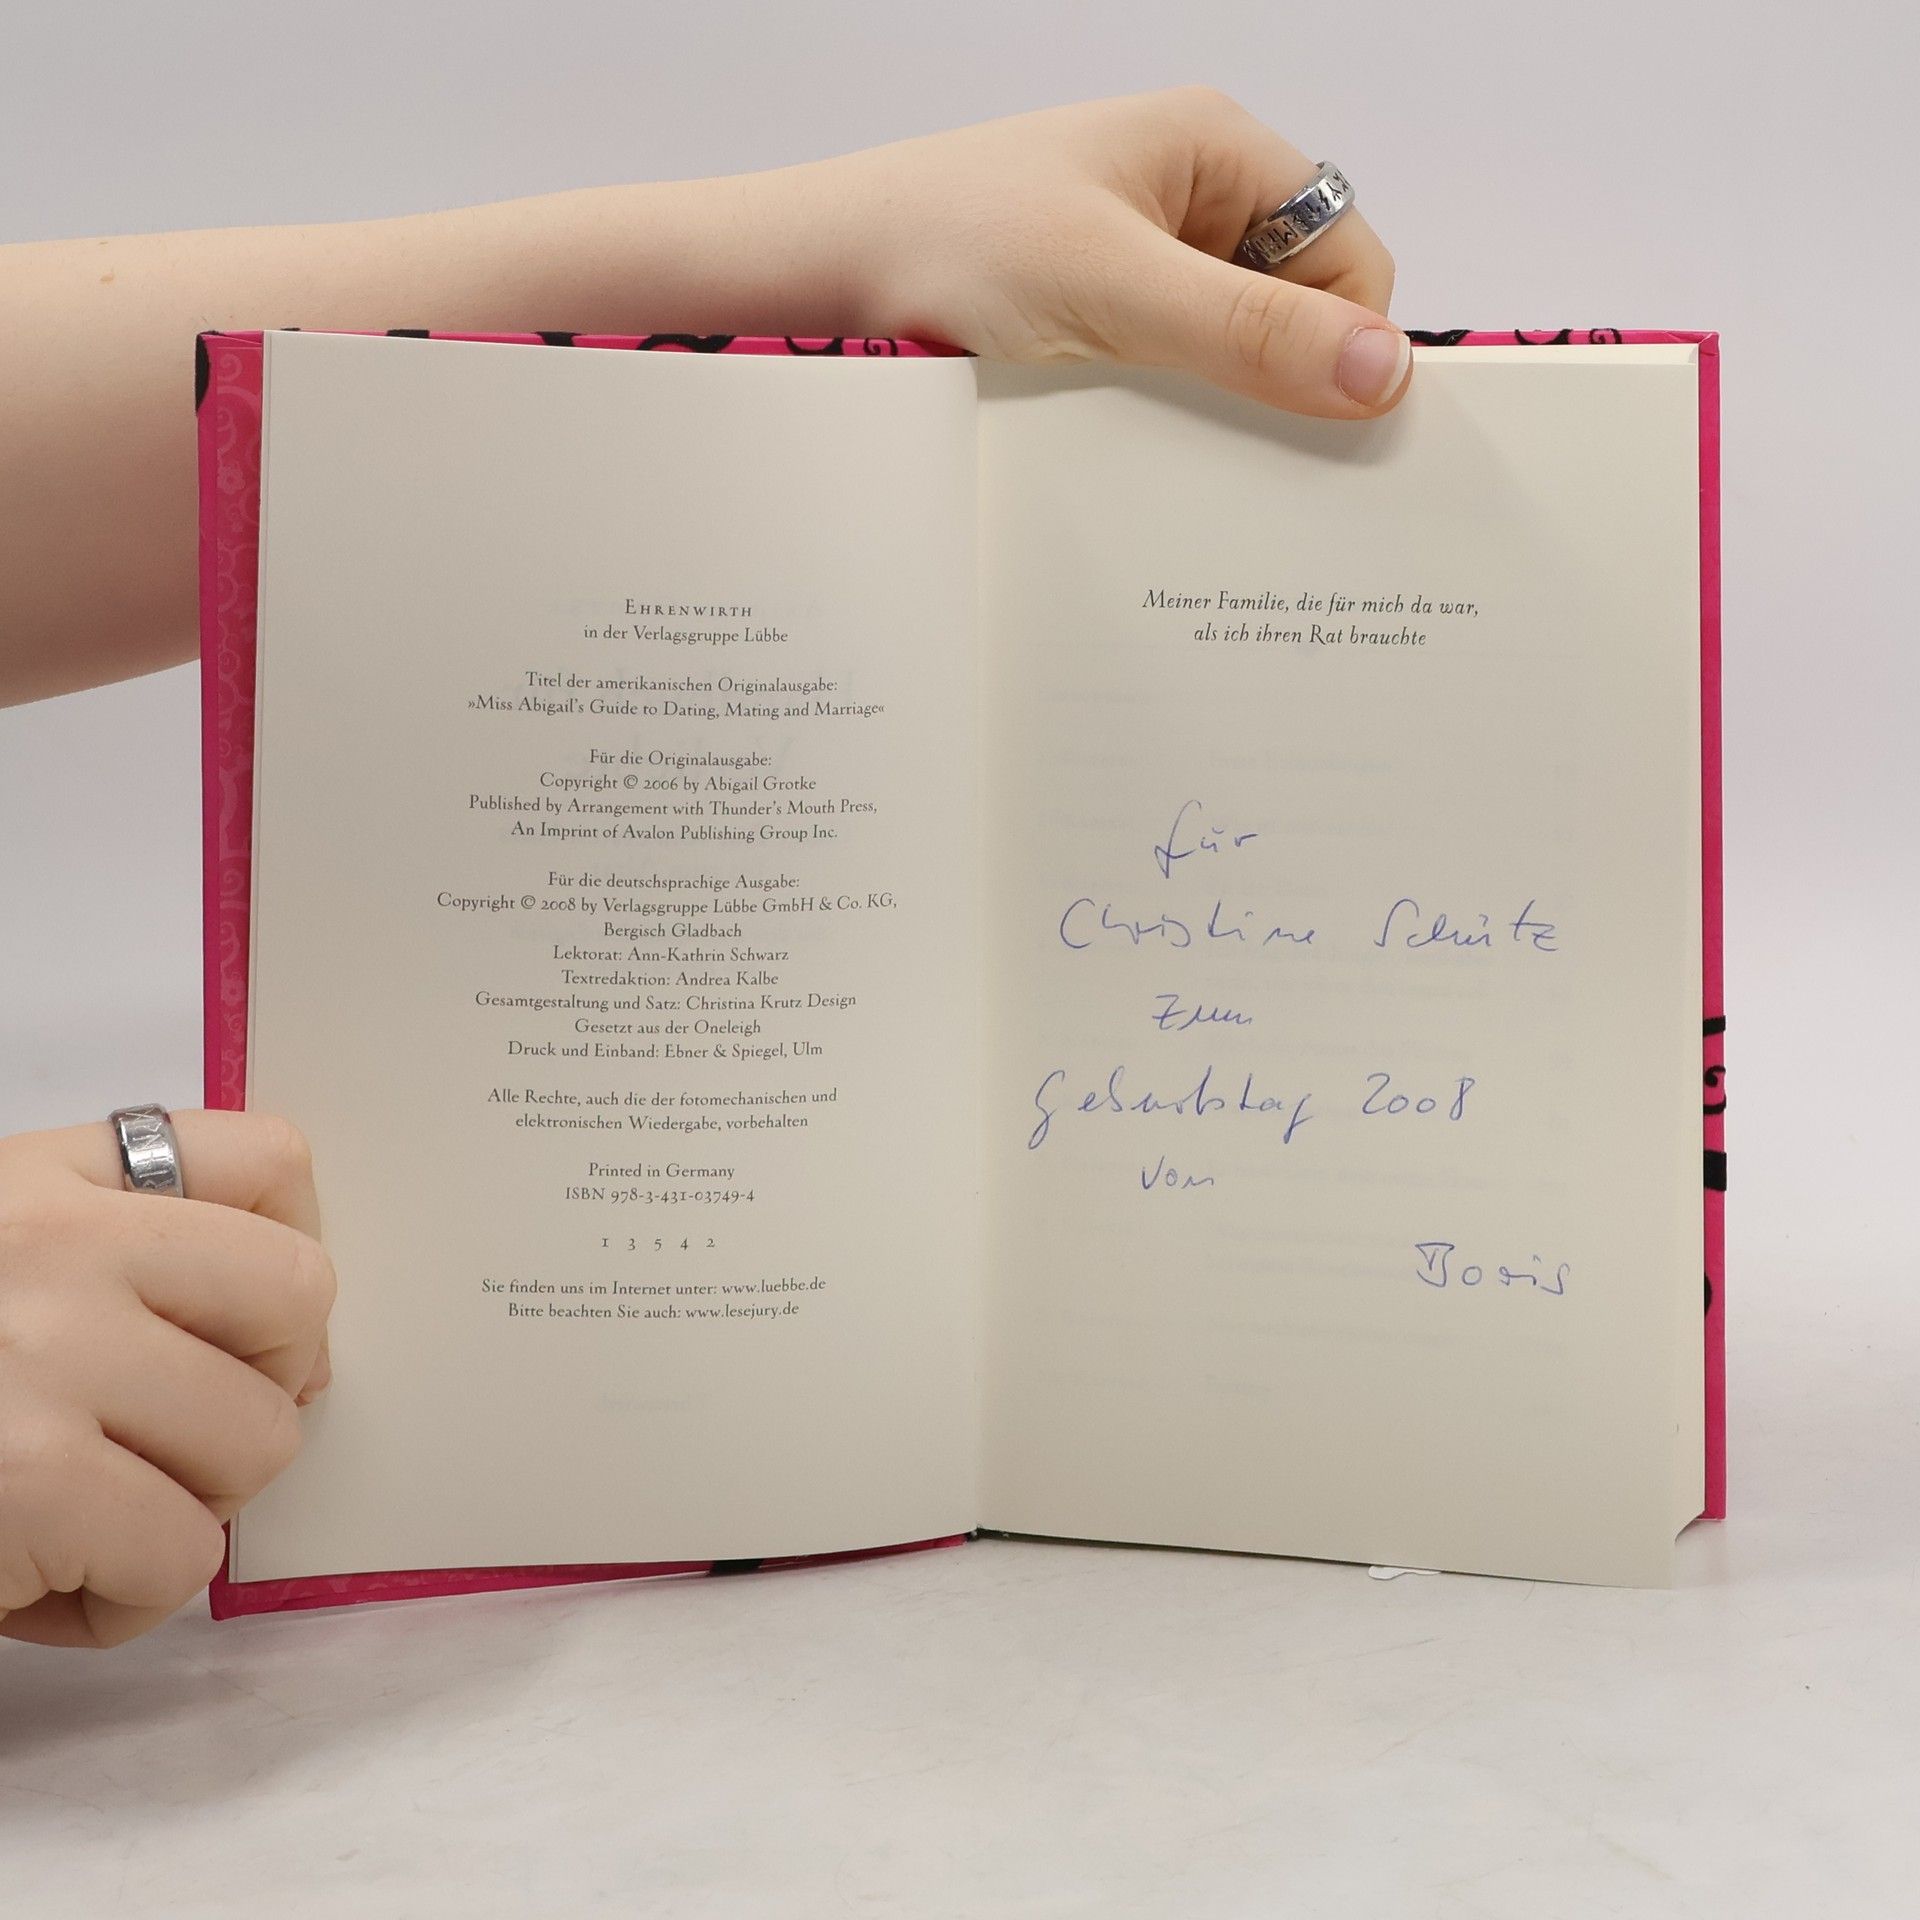 EHRENWIRTH
in der Verlagsgruppe Lübbe
Titel der amerikanischen Originalausgabe:
»Miss Abigail's Guide to Dating, Mating and Marriage«
Für die Originalausgabe:
Copyright © 2006 by Abigail Grotke
Published by Arrangement with Thunder's Mouth Press,
An Imprint of Avalon Publishing Group Inc.
Für die deutschsprachige Ausgabe:
Copyright © 2008 by Verlagsgruppe Lübbe GmbH & Co. KG,
Bergisch Gladbach
Lektorat: Ann-Kathrin Schwarz
Textredaktion: Andrea Kalbe
Gesamtgestaltung und Satz: Christina Krutz Design
Gesetzt aus der Oneleigh
Druck und Einband: Ebner & Spiegel, Ulm
Alle Rechte, auch die der fotomechanischen und
elektronischen Wiedergabe, vorbehalten
Printed in Germany
ISBN 978-3-431-03749-4
1 3 5 4 2
Sie finden uns im Internet unter: www.luebbe.de
Bitte beachten Sie auch: www.lesejury.de
Meiner Familie, die für mich da war,
als ich ihren Rat brauchte
für
Christine Schütz
zum
Geburtstag 2008
von
Boris